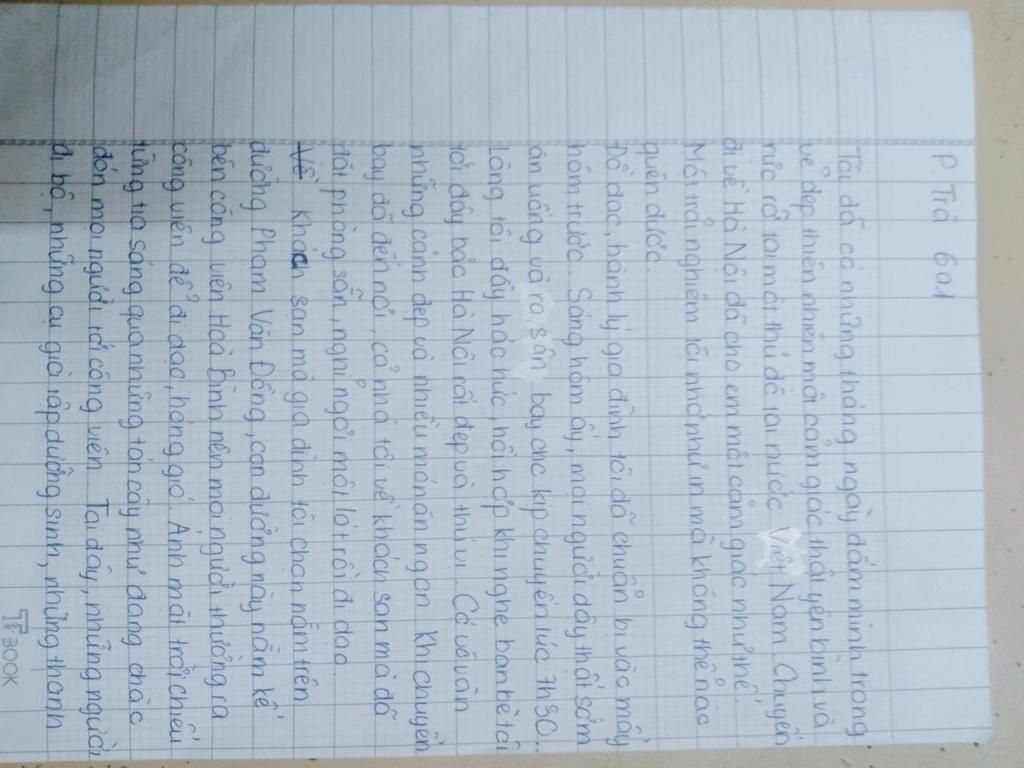 P. Trà 6a1
Tôi đã có những tháng ngày đắm mình trong
vẻ đẹp thiên nhiên một cảm giác thật yên bình và
rực rỡ tại một thủ đô tại nước Việt Nam. Chuyến
đi về Hà Nội đã cho em một cảm giác như thế.
Một trải nghiệm tôi nhớ như in mà không thể nào
quên được.
Đồ đạc, hành lý gia đình tôi đã chuẩn bị vào mấy
hôm trước. Sáng hôm ấy, mọi người dậy thật sớm
ăn uống và ra sân bay cho kịp chuyến lúc 7h30...
Lòng tôi đầy háo hức, hồi hộp khi nghe bạn bè tôi
tới đây bảo Hà Nội rất đẹp và thú vị. Có vô vàn
những cảnh đẹp và nhiều món ăn ngon. Khi chuyến
bay đã đến nơi, cả nhà tôi về khách sạn mà đã
đặt phòng sẵn, nghỉ ngơi một lát rồi đi dạo.
Về Khách sạn mà gia đình tôi chọn nằm trên
đường Phạm Văn Đồng, con đường này nằm kế
bên công viên Hoà Bình nên mọi người thường ra
công viên để đi dạo, hóng gió. Ánh mặt trời chiếu
từng tia sáng qua những tán cây như đang chào
đón mọi người tới công viên. Tại đây, những người
đi bộ, những cụ già tập dưỡng sinh, những thanh
TF BOOK